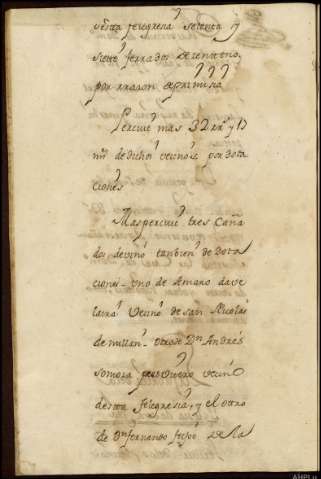 desta felegresia setenta y
siette ferrados de zenteno,
por rrazon de primisia
Percive mas 32 rrs y 17
ms de dichos vecinos por Dota
ciones
Mas percive tres Caña
dos de vino tambien de Dota
ciones uno de Amaro da ve
Vecino de san Nicolas
de millan otro de Dn Andrés
somoza vecino
desta felegresia, y el otro
de Dn fernando de la